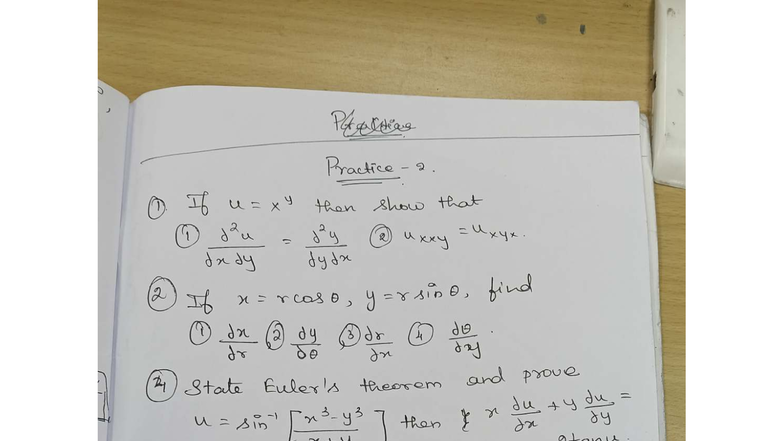 Practice - 2.
① If u = x^y then show that
① ∂²u/∂x∂y = ∂²y/∂y∂x ② u_xxy = u_xyx.
② If x = r cosθ, y = r sinθ, find
① ∂x/∂r ② ∂y/∂θ ③ ∂r/∂x ④ ∂θ/∂xy.
State Euler's theorem and prove
u = sin⁻¹ [x³-y³/x+y] then { x ∂u/∂x + y ∂u/∂y =